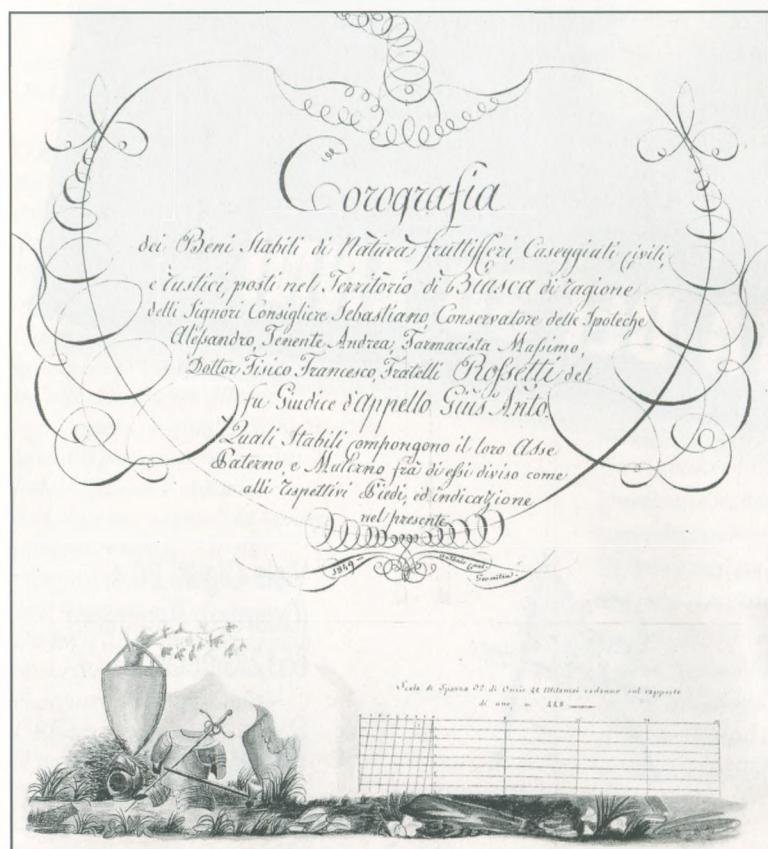 Corografia
dei Beni Stabili di Natura fruttifferi, Caseggiati civili,
e rustici, posti nel Territorio di Biasca di ragione
delli Signori Consigliere Sebastiano, Conservatore delle Ipoteche
Alessandro, Tenente Andrea, Farmacista Massimo,
Dottor Fisico Francesco, Fratelli Rossetti del
fu Giudice d'Appello Gius.e Ant.o
Quali Stabili compongono il loro Asse
Paterno, e Materno frà di essi diviso come
alli rispettivi Piedi, ed indicazione
nel presente
1849
Scala di Spazza 32 di Oncie 44 Milanesi cadauno sul rapporto
di uno, a